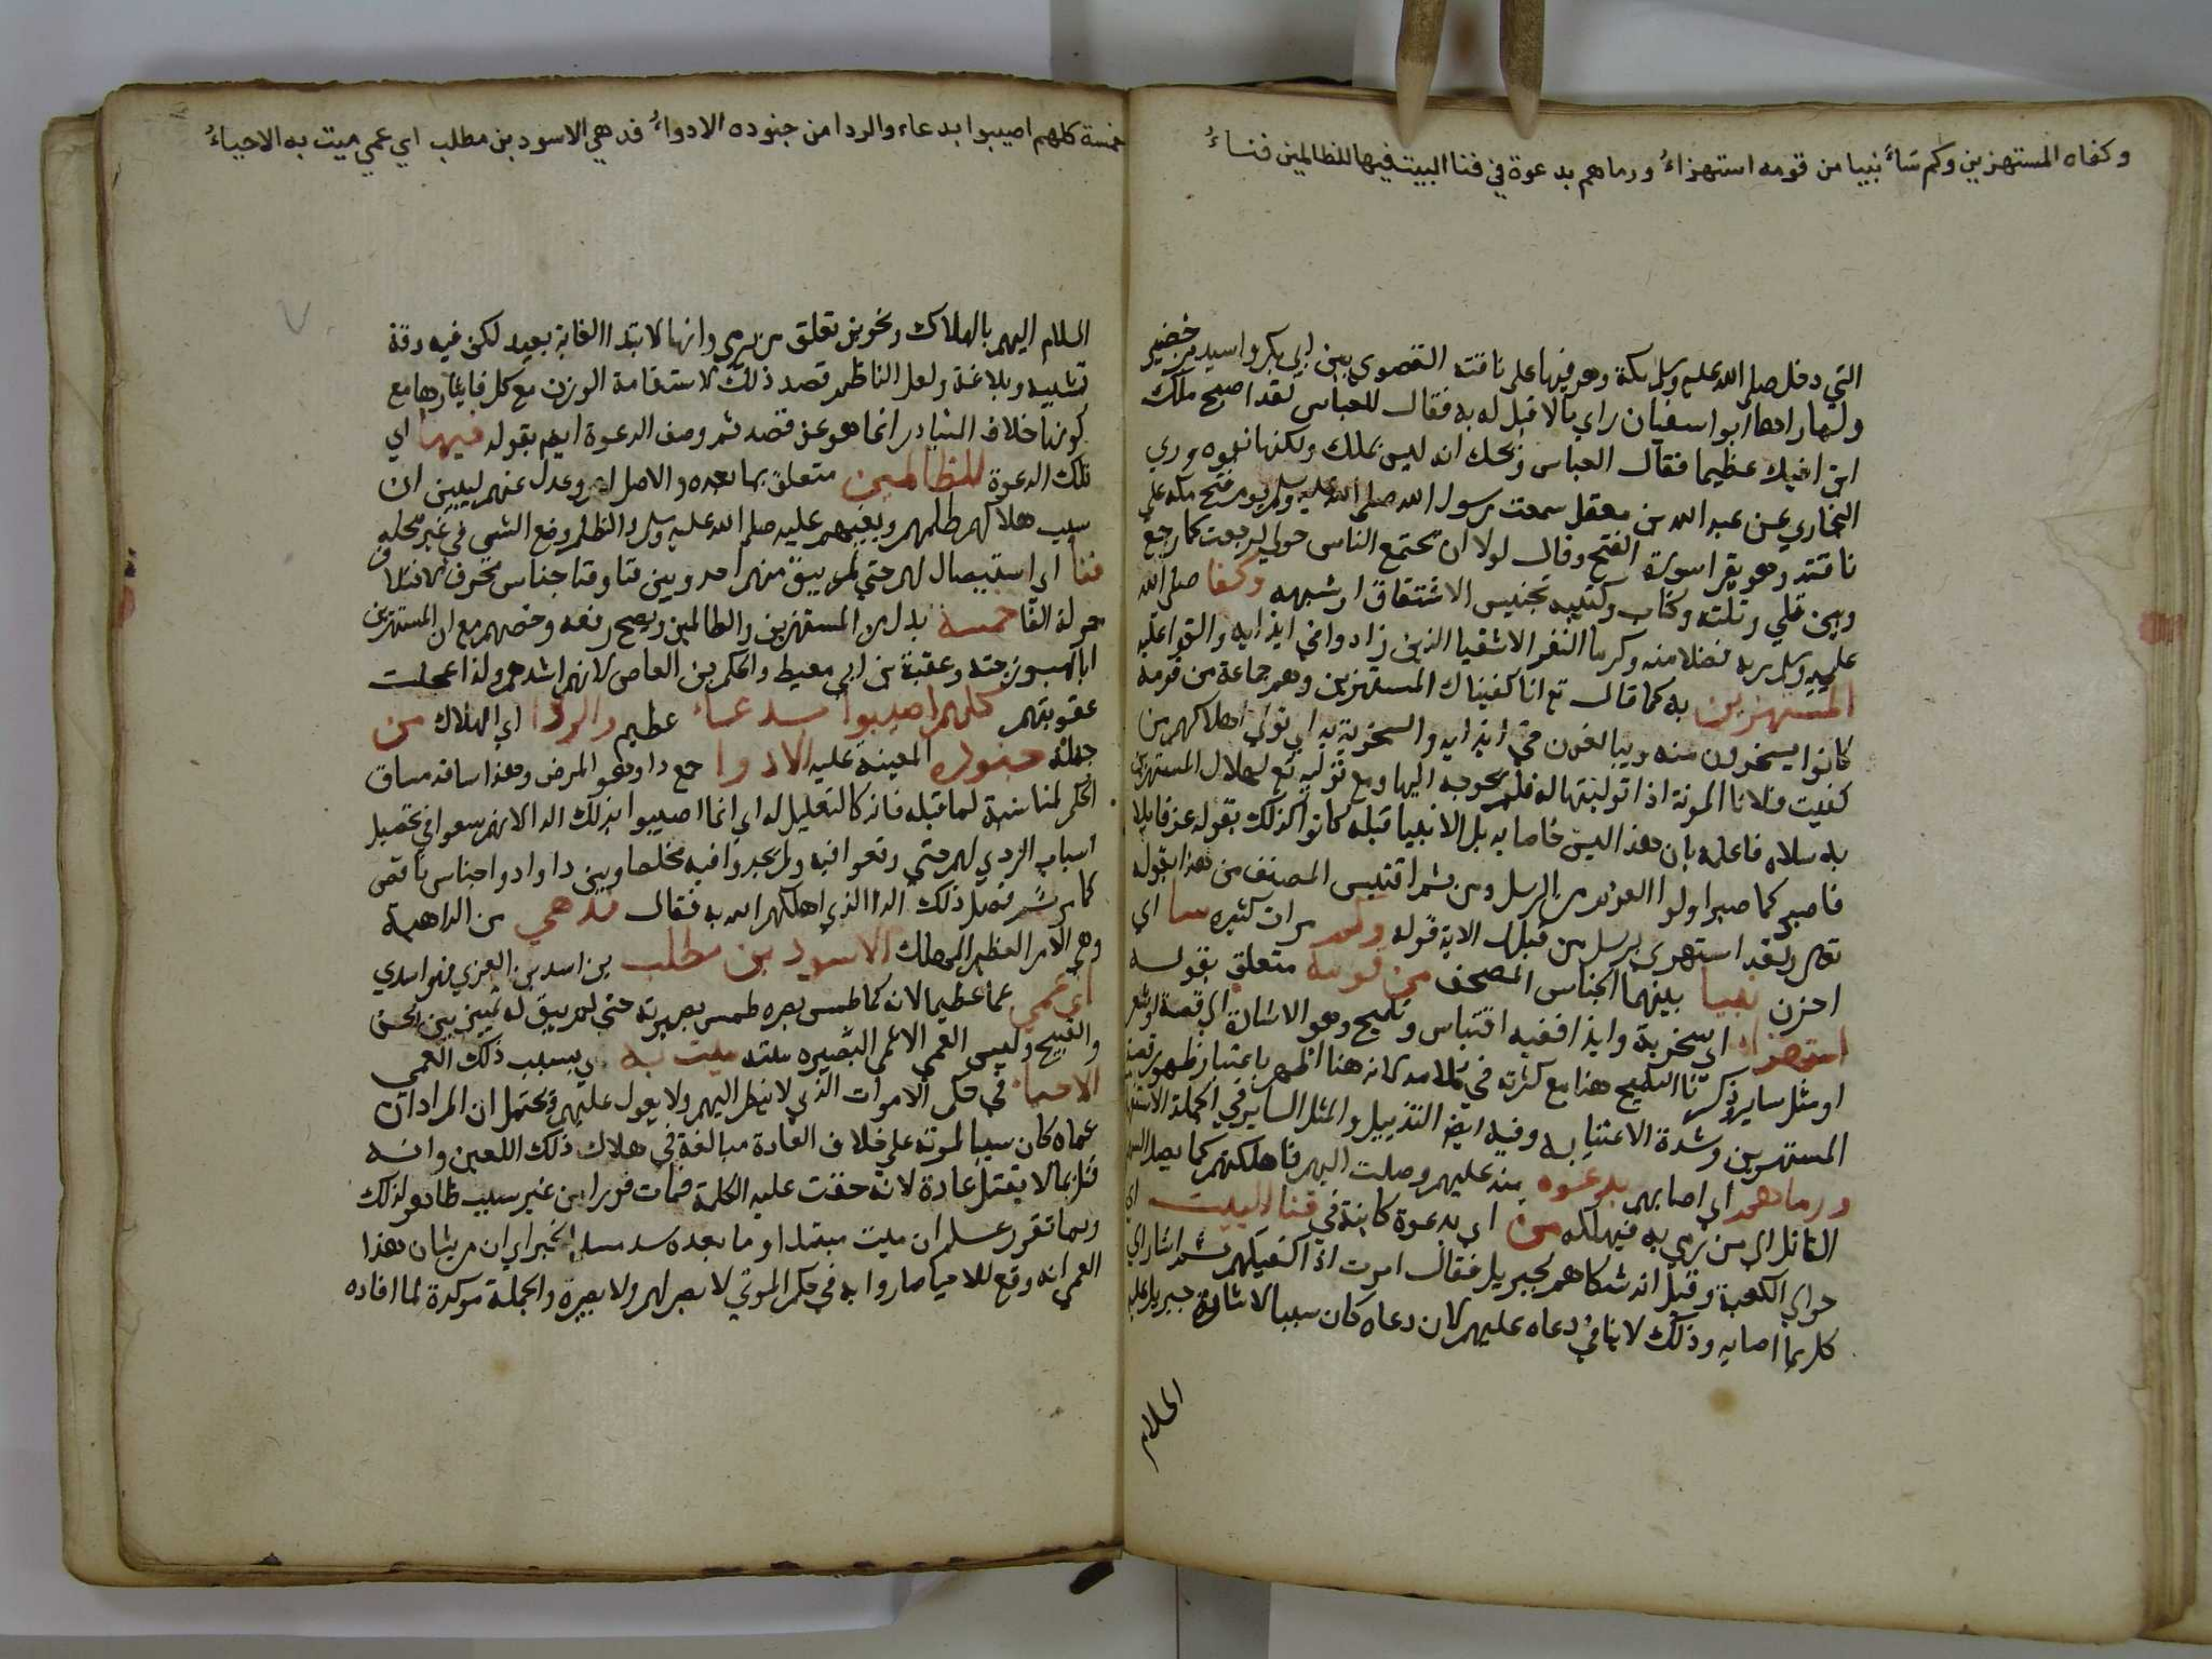 وكفاه المستهزين وكم ساءَ نبيا من قومه استهزاءُ ورماهم بدعوة في فنا البيت فيها للظالمين فناءُ
التي دخل صلى الله عليه وسلم مكة وهو فيها على ناقته القصوى بين ابي بكر واسيد بن حضير
ولما راها ابو اسفيان راي مالا قبل له به فقال للعباس لقد اصبح ملك
ابن اخيك عظيما فقال العباس ويحك انه ليس بملك ولكنها نبوه وروي
البخاري عن عبد الله بن معقل سمعت رسول الله صلى الله عليه وسلم يوم فتح مكه على
ناقته وهو يقرا سورة الفتح وقال لولا ان تجتمع الناس حولي لرجعت كما رجع
وبين قلي وتلته وكتاب وكتيبه تجنيس الاشتقاق او شبهه وكفا صلى الله
عليه وسلم ربه فضلا منه وكرما النفر الاشقيا الذين زادوا في ايذايه والتوا عليه
المستهزين به كما قال تع انا كفيناك المستهزين وهم جماعة من قومه
كانوا يسخرون منه ويبالغون في ايذايه والسخرية به اي تولى اهلاكهم من
كفيت فلانا المونة اذا توليتها له فلم تحوجه اليها ومع توليه تع لهلاك المستهزين
به سلاه فاعلمه بان هذا ليس خاصا به بل الانبيا قبله كانوا كذلك بقوله عز قايلا
فاصبر كما صبر اولوا العزم من الرسل ومن ثم اقتبس المصنف من هذا بقوله
تعالى ولقد استهزي برسل من قبلك الاية قوله وكم مرات كثيره ساء اي
احزن نبيا بينهما الجناس المصحف من قومه متعلق بقوله
استهزاء اي سخرية وايذا ففيه اقتباس وتلميح وهو الاشارة الي قصة او شعر
او مثل ساير ذكرنا التلميح هنا مع كثرته في كلامه لانه هنا اظهر باعتبار ظهور قصة
المستهزين وشدة الاعتنا به وفيه ايضا التذييل والمثل الساير في الجملة
ورماهم اي اصابهم بدعوه منه عليهم وصلت اليهم فاهلكتهم كما يصل السهم
القاتل الي من رمي به فيهلكه من اي بدعوة كاينة في فنا البيت اي
حوالي الكعبة وقيل انه شكاهم لجبريل فقال امرت ان اكفيكهم ثم اشار الي
كل بما اصابه وذلك لا ينافي دعاه عليهم لان دعاه كان سببا لاشارة جبريل عليه
السلام
خمسة كلهم اصيبوا بدعاء والردا من جنوده الادواءُ فدهي الاسود بن مطلب اي عمي ميت به الاحياءُ
السلام اليهم بالهلاك وتجويز تعلق من برمي وانها لابتدا الغاية بعيد لكن فيه دقة
تشبيه وبلاغة ولعل الناظم قصد ذلك لاستقامة الوزن مع كل فايثارها مع
كونها خلاف المتبادر انما هو عن قصد ثم وصف الدعوة ايضا بقوله فيها اي
تلك الدعوة للظالمين متعلق بما بعده والاصل لهم وعدل عنه ليبين ان
سبب هلاكهم ظلمهم وبغيهم عليه صلى الله عليه وسلم والظلم وضع الشي في غير محله
فنا اي استيصال لهم حتى لم يبق منهم احد وبين فنا وفنا جناس محرف لاختلاف
حركة الفا خمسة بدل من المستهزين والظالمين ويصح رفعه وخصهم مع ان المستهزين
ابا لهب وزوجته وعقبة بن ابي معيط والحكم بن العاص لانهم اشدهم ولذا عجلت
عقوبتهم كلهم اصيبوا بدعاء عظيم والردا اي الهلاك من
جملة جنوده المعينة عليه الادوا جمع دا وهو المرض وهذا ساقه مساق
الحكم لمناسبة لما قبله فانه كالتعليل له اي انما اصيبوا بذلك الدا لانهم سعوا في تحصيل
اسباب الردي لهم حتى وقعوا فيه ولم يجدوا فيه مخلصا وبين دا وادوا جناس ناقص
كما مر ثم فصل ذلك الدا الذي اهلكهم الله به فقال فدهي من الداهية
وهي الامر العظيم المهلك الاسود بن مطلب بن اسد بن العزي فهو اسدي
اي عمي عما عظيما لانه كما طمس بصره طمس بصيرته حتى لم يبق له تمييز بين الحسن
والقبيح وليس العمي الا عمي البصيره ميت به اي بسبب ذلك العمي
الاحياء في حكم الاموات الذي لا ينظر اليهم ولا يعول عليهم ويحتمل ان المراد ان
عماه كان سببا لموته على خلاف العادة مبالغة في هلاك ذلك اللعين وانه
قتل بما لا يقتل عادة لانه حقت عليه الكلمة فمات فورا من غير سبب ظاهر لذلك
وبما تقرر علم ان ميت مبتدا وما بعده سد مسد الخبر اي ان من شان هذا
العمي انه وقع للاحيا صاروا به في حكم الموتي لا بصر لهم ولا بصيرة والجملة موكدة لما افاده